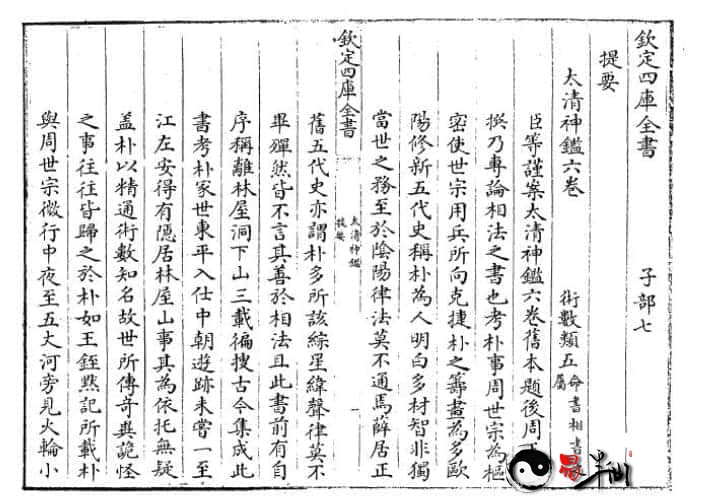 欽定四庫全書 子部七
提要
太清神鑑六卷 術數類五 命書相書 屬
臣等謹案太清神鑑六卷舊本題後周王
撰乃專論相法之書也考朴事周世宗為樞
密使世宗用兵所向克捷朴之籌畫為多歐
陽修新五代史稱朴為人明白多材智非獨
當世之務至於陰陽律法莫不通焉薛居正
欽定四庫全書 太清神鑑 提要 一
舊五代史亦謂朴多所該綜星緯聲律莫不
畢殫然皆不言其善於相法且此書前有自
序稱離林屋洞下山三載徧搜古今集成此
書考朴家世東平入仕中朝遊跡未嘗一至
江左安得有隱居林屋山事其為依托無疑
盖朴以精通術數知名故世所傳奇異詭怪
之事往往皆歸之於朴如王銍默記所載朴
與周世宗微行中夜至五丈河旁見火輪小